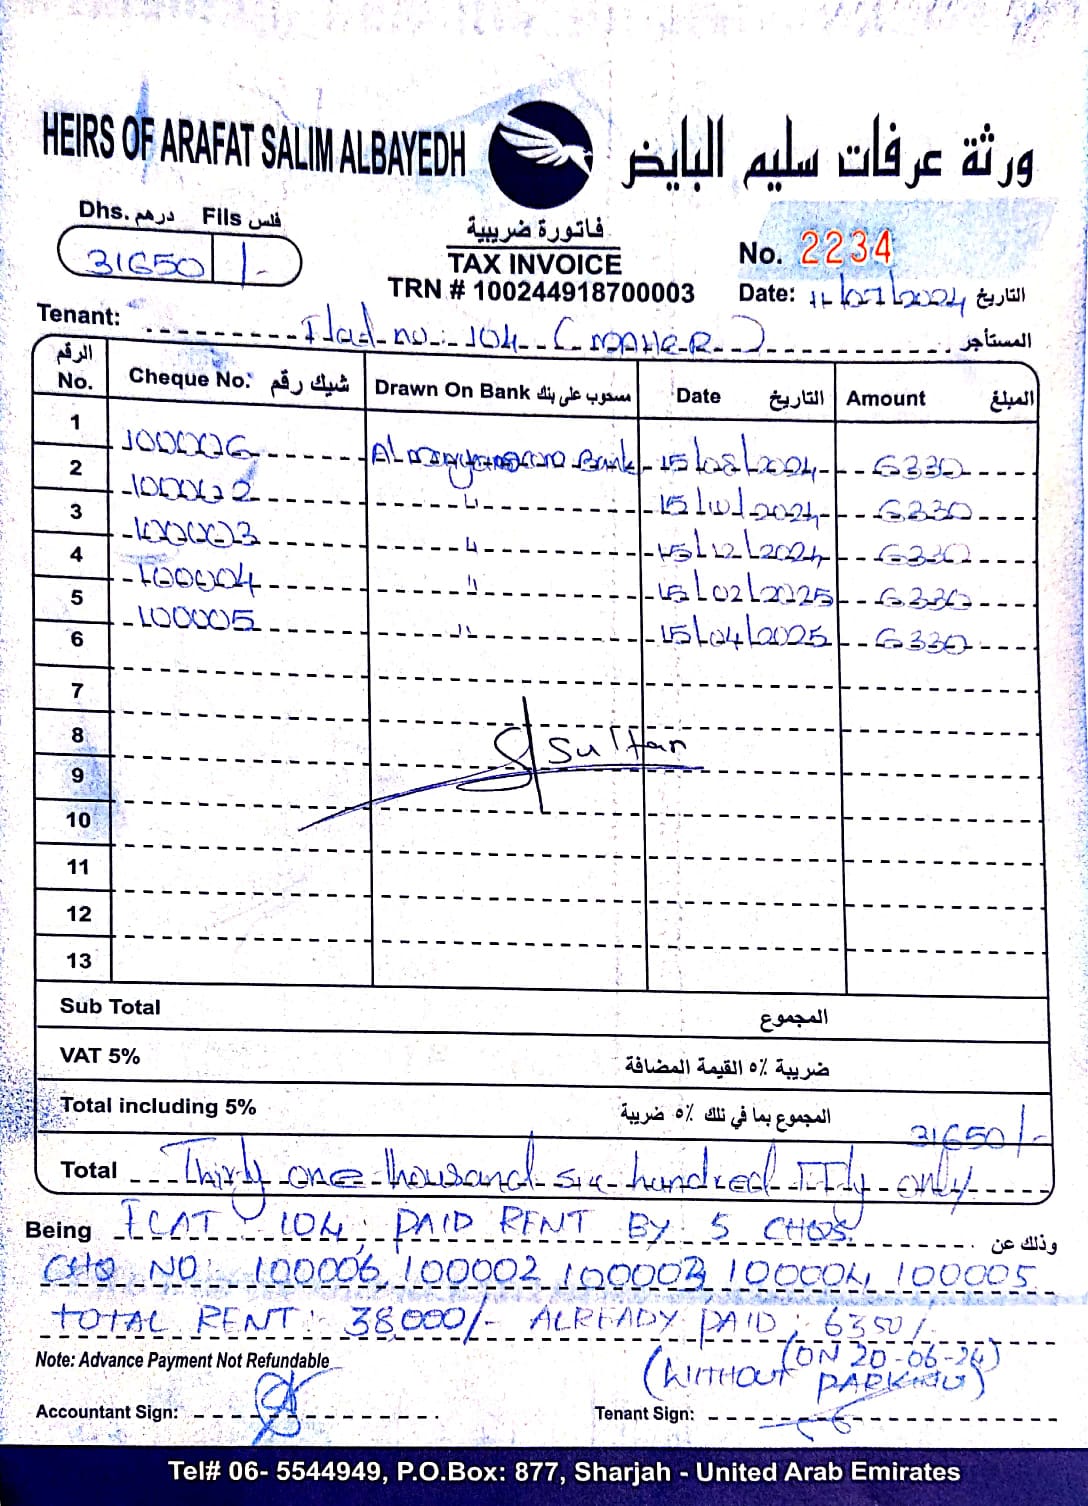 HEIRS OF ARAFAT SALIM ALBAYEDH ورثة عرفات سليم البايض
Dhs. درهم Fils فلس
31650 /-
فاتورة ضريبية
TAX INVOICE
TRN # 100244918700003
No. 2234
Date: /07/2024 التاريخ
Tenant: Flat no: 104 (MAHER) المستأجر
الرقم No. Cheque No. شيك رقم Drawn On Bank مسحوب على بنك Date التاريخ Amount المبلغ
1 100006 Bank 15/08/2024 6330
2 100002 " 15/10/2024 6330
3 100003 " 15/12/2024 6330
4 100004 " 15/02/2025 6330
5 100005 " 15/04/2025 6330
6
7
8 Sultan
9
10
11
12
13
Sub Total المجموع
VAT 5% ضريبة ٥٪ القيمة المضافة
Total including 5% المجموع بما في ذلك ٥٪ ضريبة 31650/-
Total Thirty one thousand six hundred Fifty only
Being FLAT: 104: PAID RENT BY 5 CHQS. وذلك عن
CHQ NO: 100006, 100002, 100003, 100004, 100005
TOTAL RENT: 38,000/- ALREADY PAID: 6350/-
(ON 20-06-24)
Note: Advance Payment Not Refundable (WITHOUT PARKING)
Accountant Sign: Tenant Sign:
Tel# 06- 5544949, P.O.Box: 877, Sharjah - United Arab Emirates